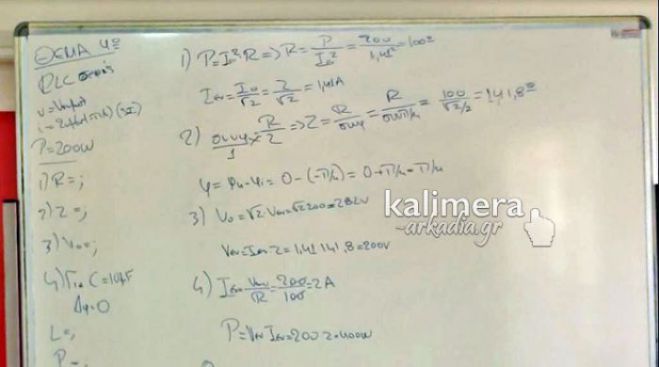 ΘΕΜΑ 4º
RLC σειράς
P=200W
1) R=;
2) Z=;
3) V₀=;
4) Για C=10μF
Δφ=0
L=;
P=;
1) P=I²R => R= P/I² = 200/1,41² =100Ω
Iεν= I₀/√2 = 2/√2 =1,41A
2) συνφ= R/Z => Z= R/συνφ = R/συνπ/4 = 100/√2/2 =141,8Ω
φ= φu-φi = 0-(-π/4)= 0+π/4=π/4
3) V₀=√2 Vεν=√2 200=282V
Vεν=Iεν Z=1,41 141,8=200V
4) Iεν= Vεν/R = 200/100 =2A
P=Vεν Iεν=200 2=400W
kalimera
-arkadia.gr